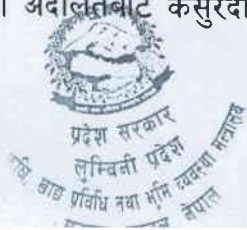 अदालतबाट कसुरदा
प्रदेश सरकार
लुम्बिनी प्रदेश
कृषि, खाद्य प्रविधि तथा भूमि व्यवस्था मन्त्रालय
नेपाल